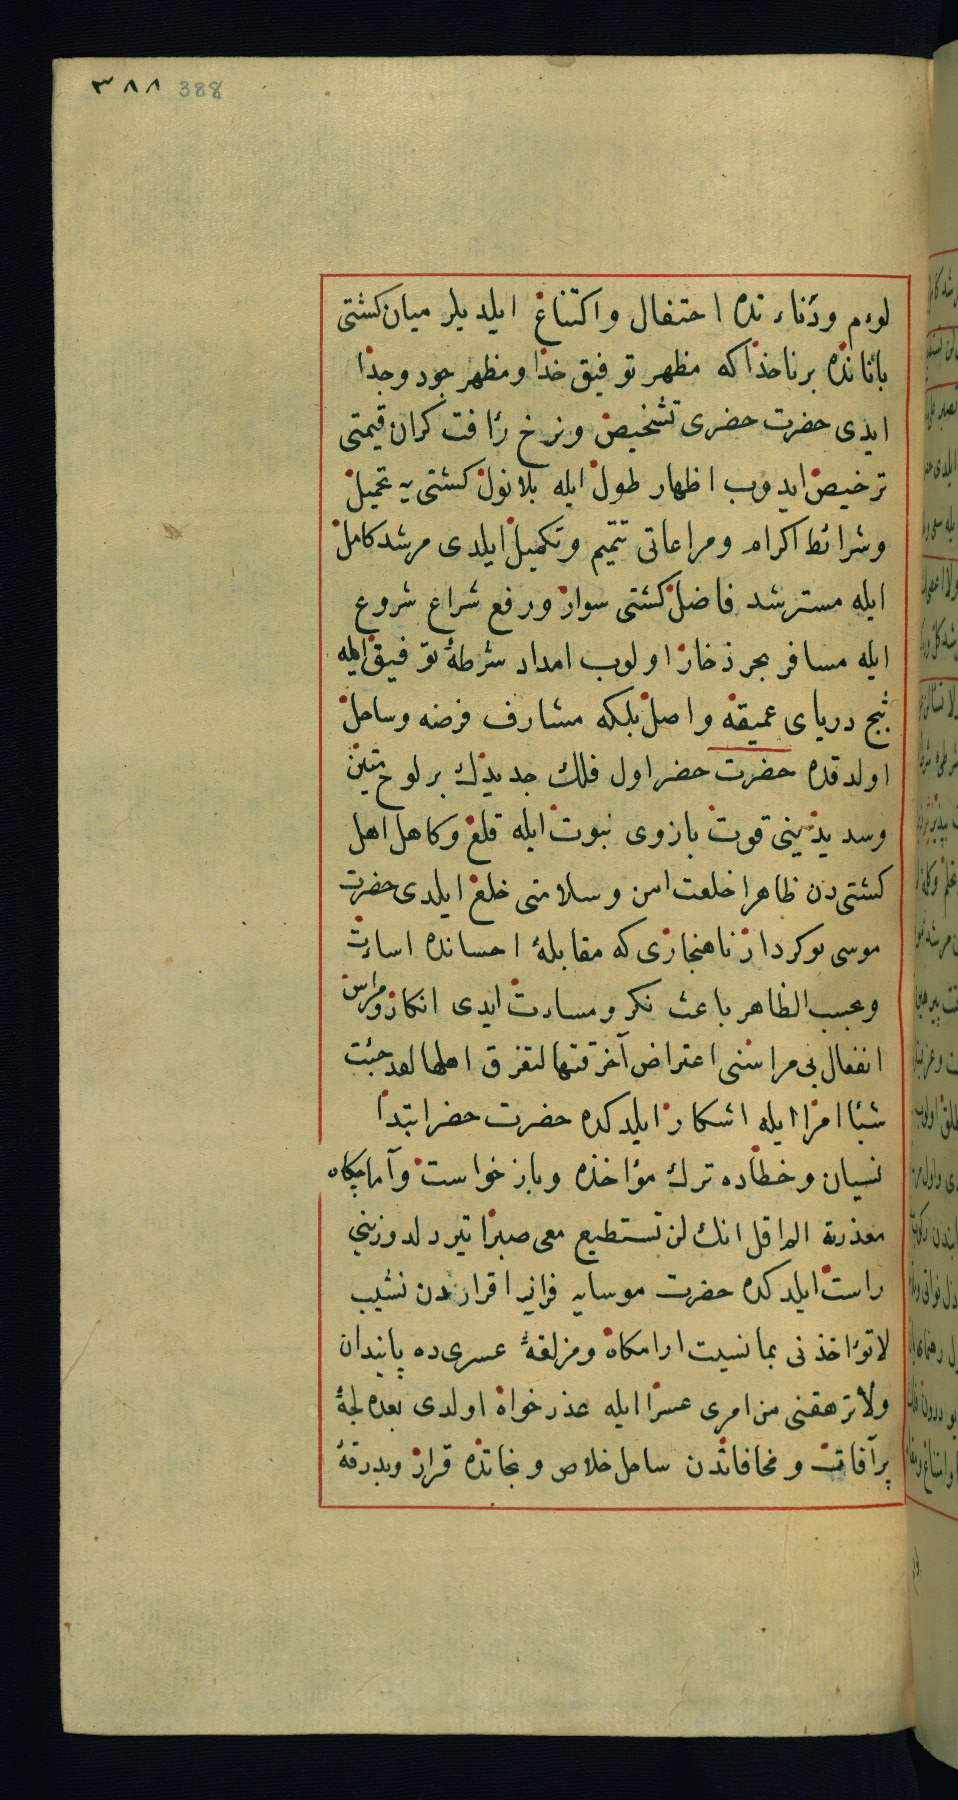 ٣٨٨ 388
لوءم ودناءتده احتفال واكتناغ ايلديلر ميان كشتى
باناندہ برناخذا كه مظهر توفيق خذا ومظهر جود وجذا
ايدى حضرت حضرى تشخيص ونرخ رأفت كران قيمتى
ترخيص ايدوب اظهار طول ايله بلا نول كشتى يه تحميل
وشرائط اكرام ومراعاتى تتميم وتكميل ايلدى مرشد كامل
ايله مسترشد فاضل كشتى سوار ورفع شراع شروع
ايله مسافر بحر ذخار اولوب امداد شرطۀ توفيق ايله
ثبج درياى عميقه واصل بلكه مشارف فرضه وساحل
اولدقده حضرت حضر اول فلك جديدك بر لوح متين
وسديدينى قوت بازوى نبوت ايله قلع وكاهل اهل
كشتى دن ظاهرا خلعت امن وسلامتى خلع ايلدى حضرت
موسى بوكردار ناهنجارى كه مقابلۀ احسانده اساءت
وبحسب الظاهر باعث نكر ومساءت ايدى انكار ومراس
انفعال بى مراسنى اعتراض آخرقتها لتغرق اهلها لقد جئت
شيئا امرا ايله اشكار ايلدكده حضرت حضر ابتدا
نسيان وخطاده ترك مؤاخذه وبازخواست وآماجكاه
معذرته الم اقل انك لن تستطيع معى صبرا تير دلدوزينى
راست ايلدكده حضرت موسايه فرانيه اقراردن نشيب
لا تؤاخذنى بما نسيت ارامكاه ومزلقۀ عسرى ده پايندان
ولا ترهقنى من امرى عسرا ايله عذرخواه اولدى بعده لجۀ
پر آفاتت ومخافاتدن ساحل خلاص ونجاتده قرار وبدرقۀ